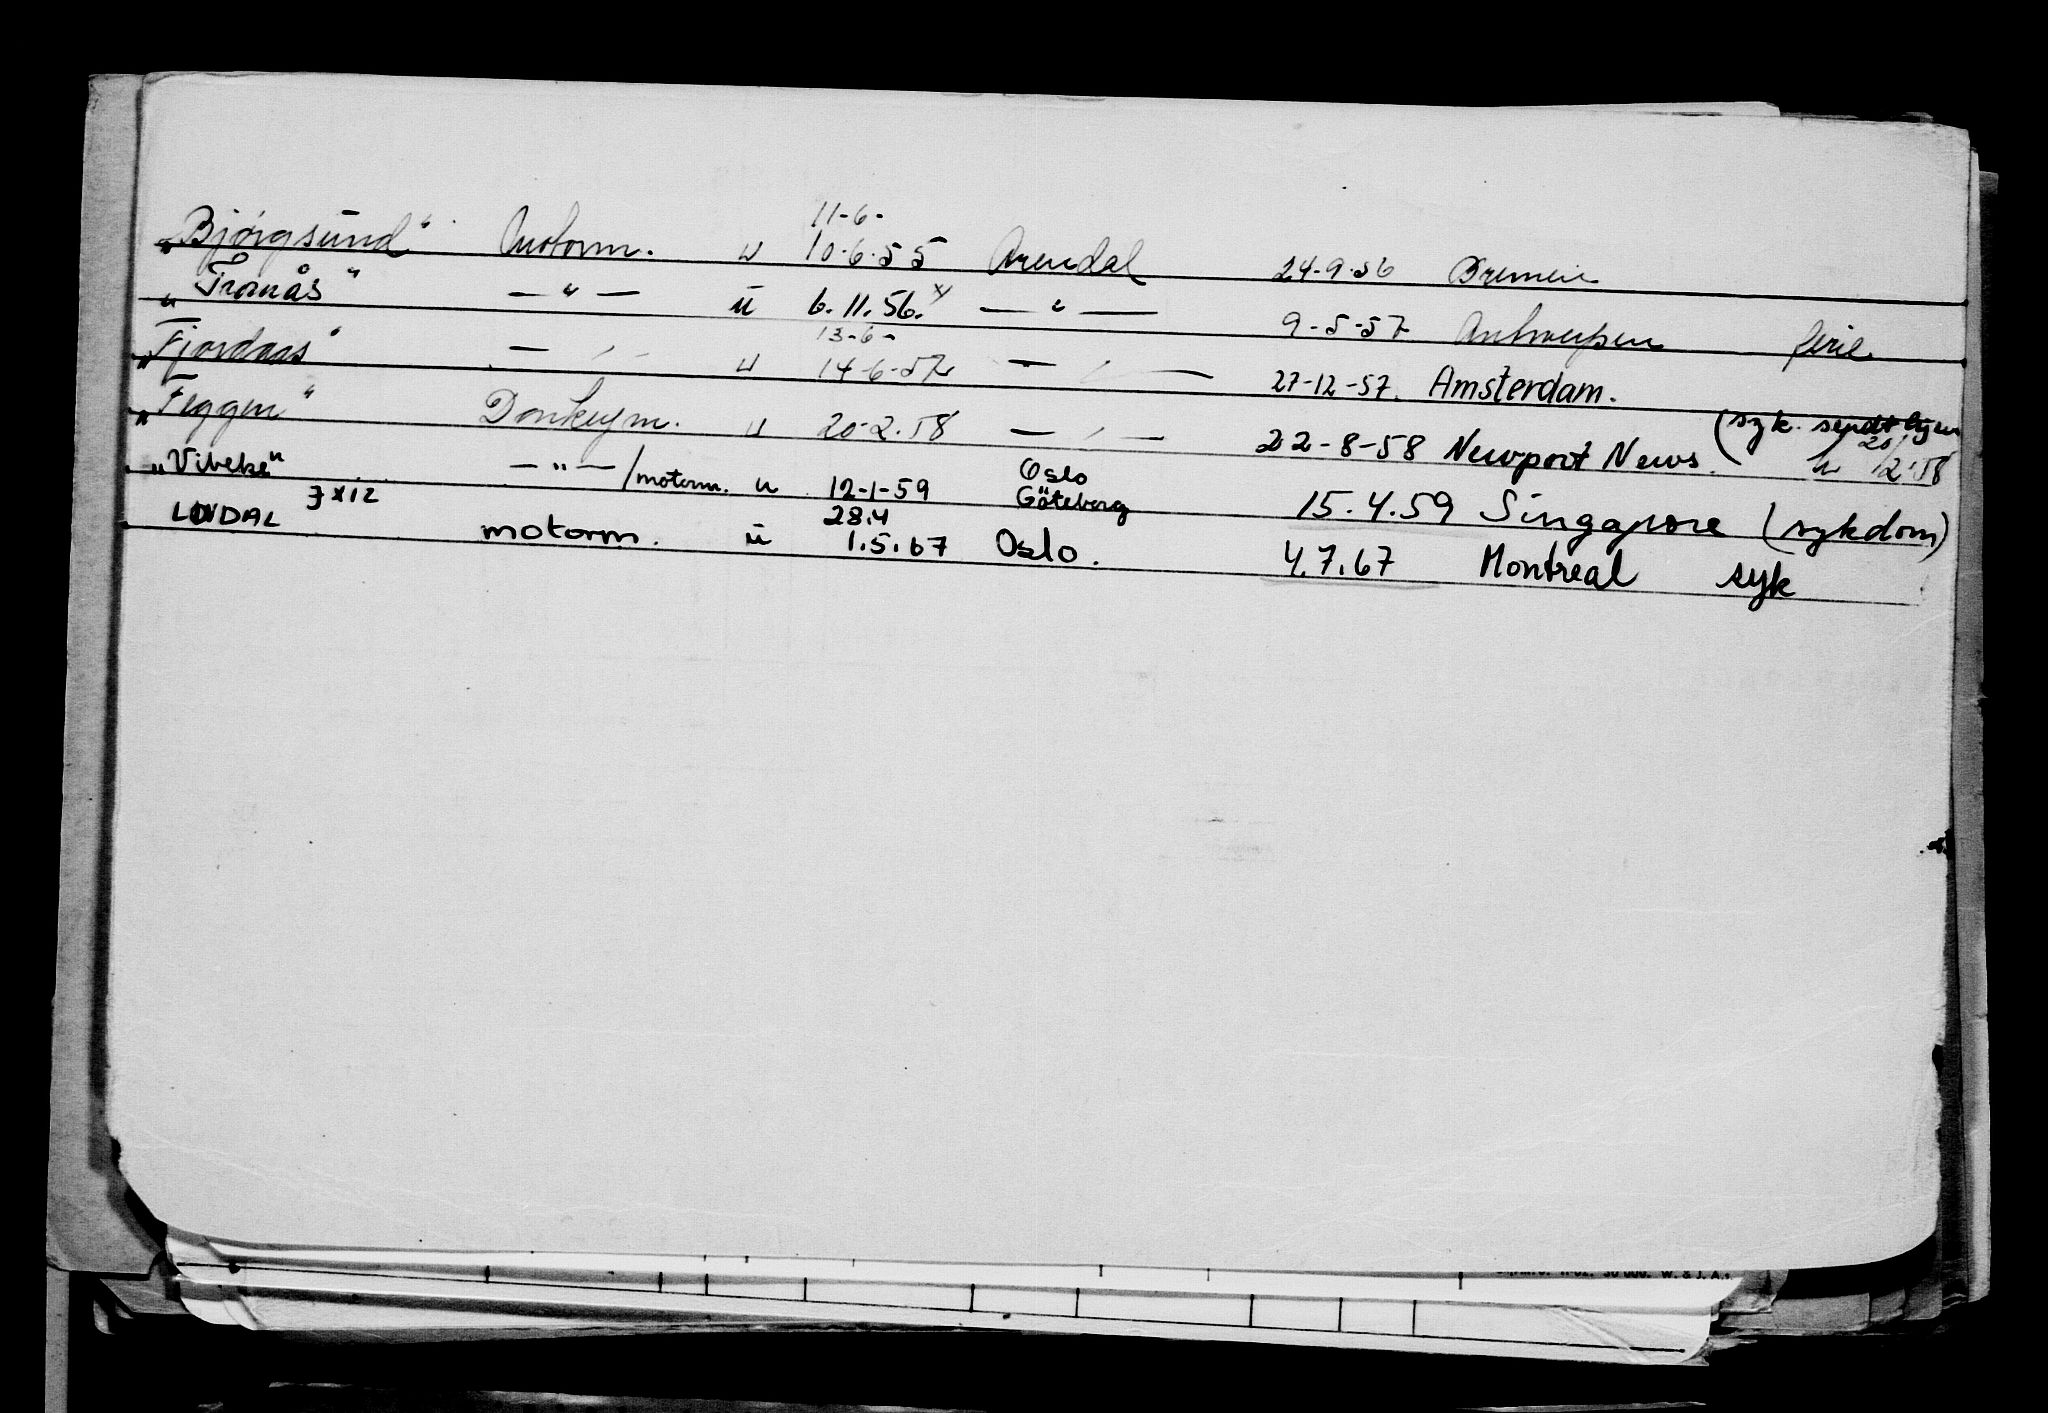 11-6-
"Bjørgsund" Motorm. u 10-6-55 Arendal 24-9-56 Bremen
"Tromås" — " — u 6.11.56. x/ — " — 9-5-57 Antwerpen ferie
13-6-
"Fjordaas" — " — u 14-6-57 — " — 27-12-57. Amsterdam.
"Feggen" Donkeym. u 20-2.58 — " — 22-8-58 Newport News. (syk. sendt hjem
20/12-58
"Vibeke" — " — /motorm. u 12-1-59 Oslo
Göteborg 15.4.59 Singapore (sykdom)
7x12 28.4
LINDAL motorm. u 1.5.67 Oslo. 4.7.67 Montreal syk
W. & J. A.